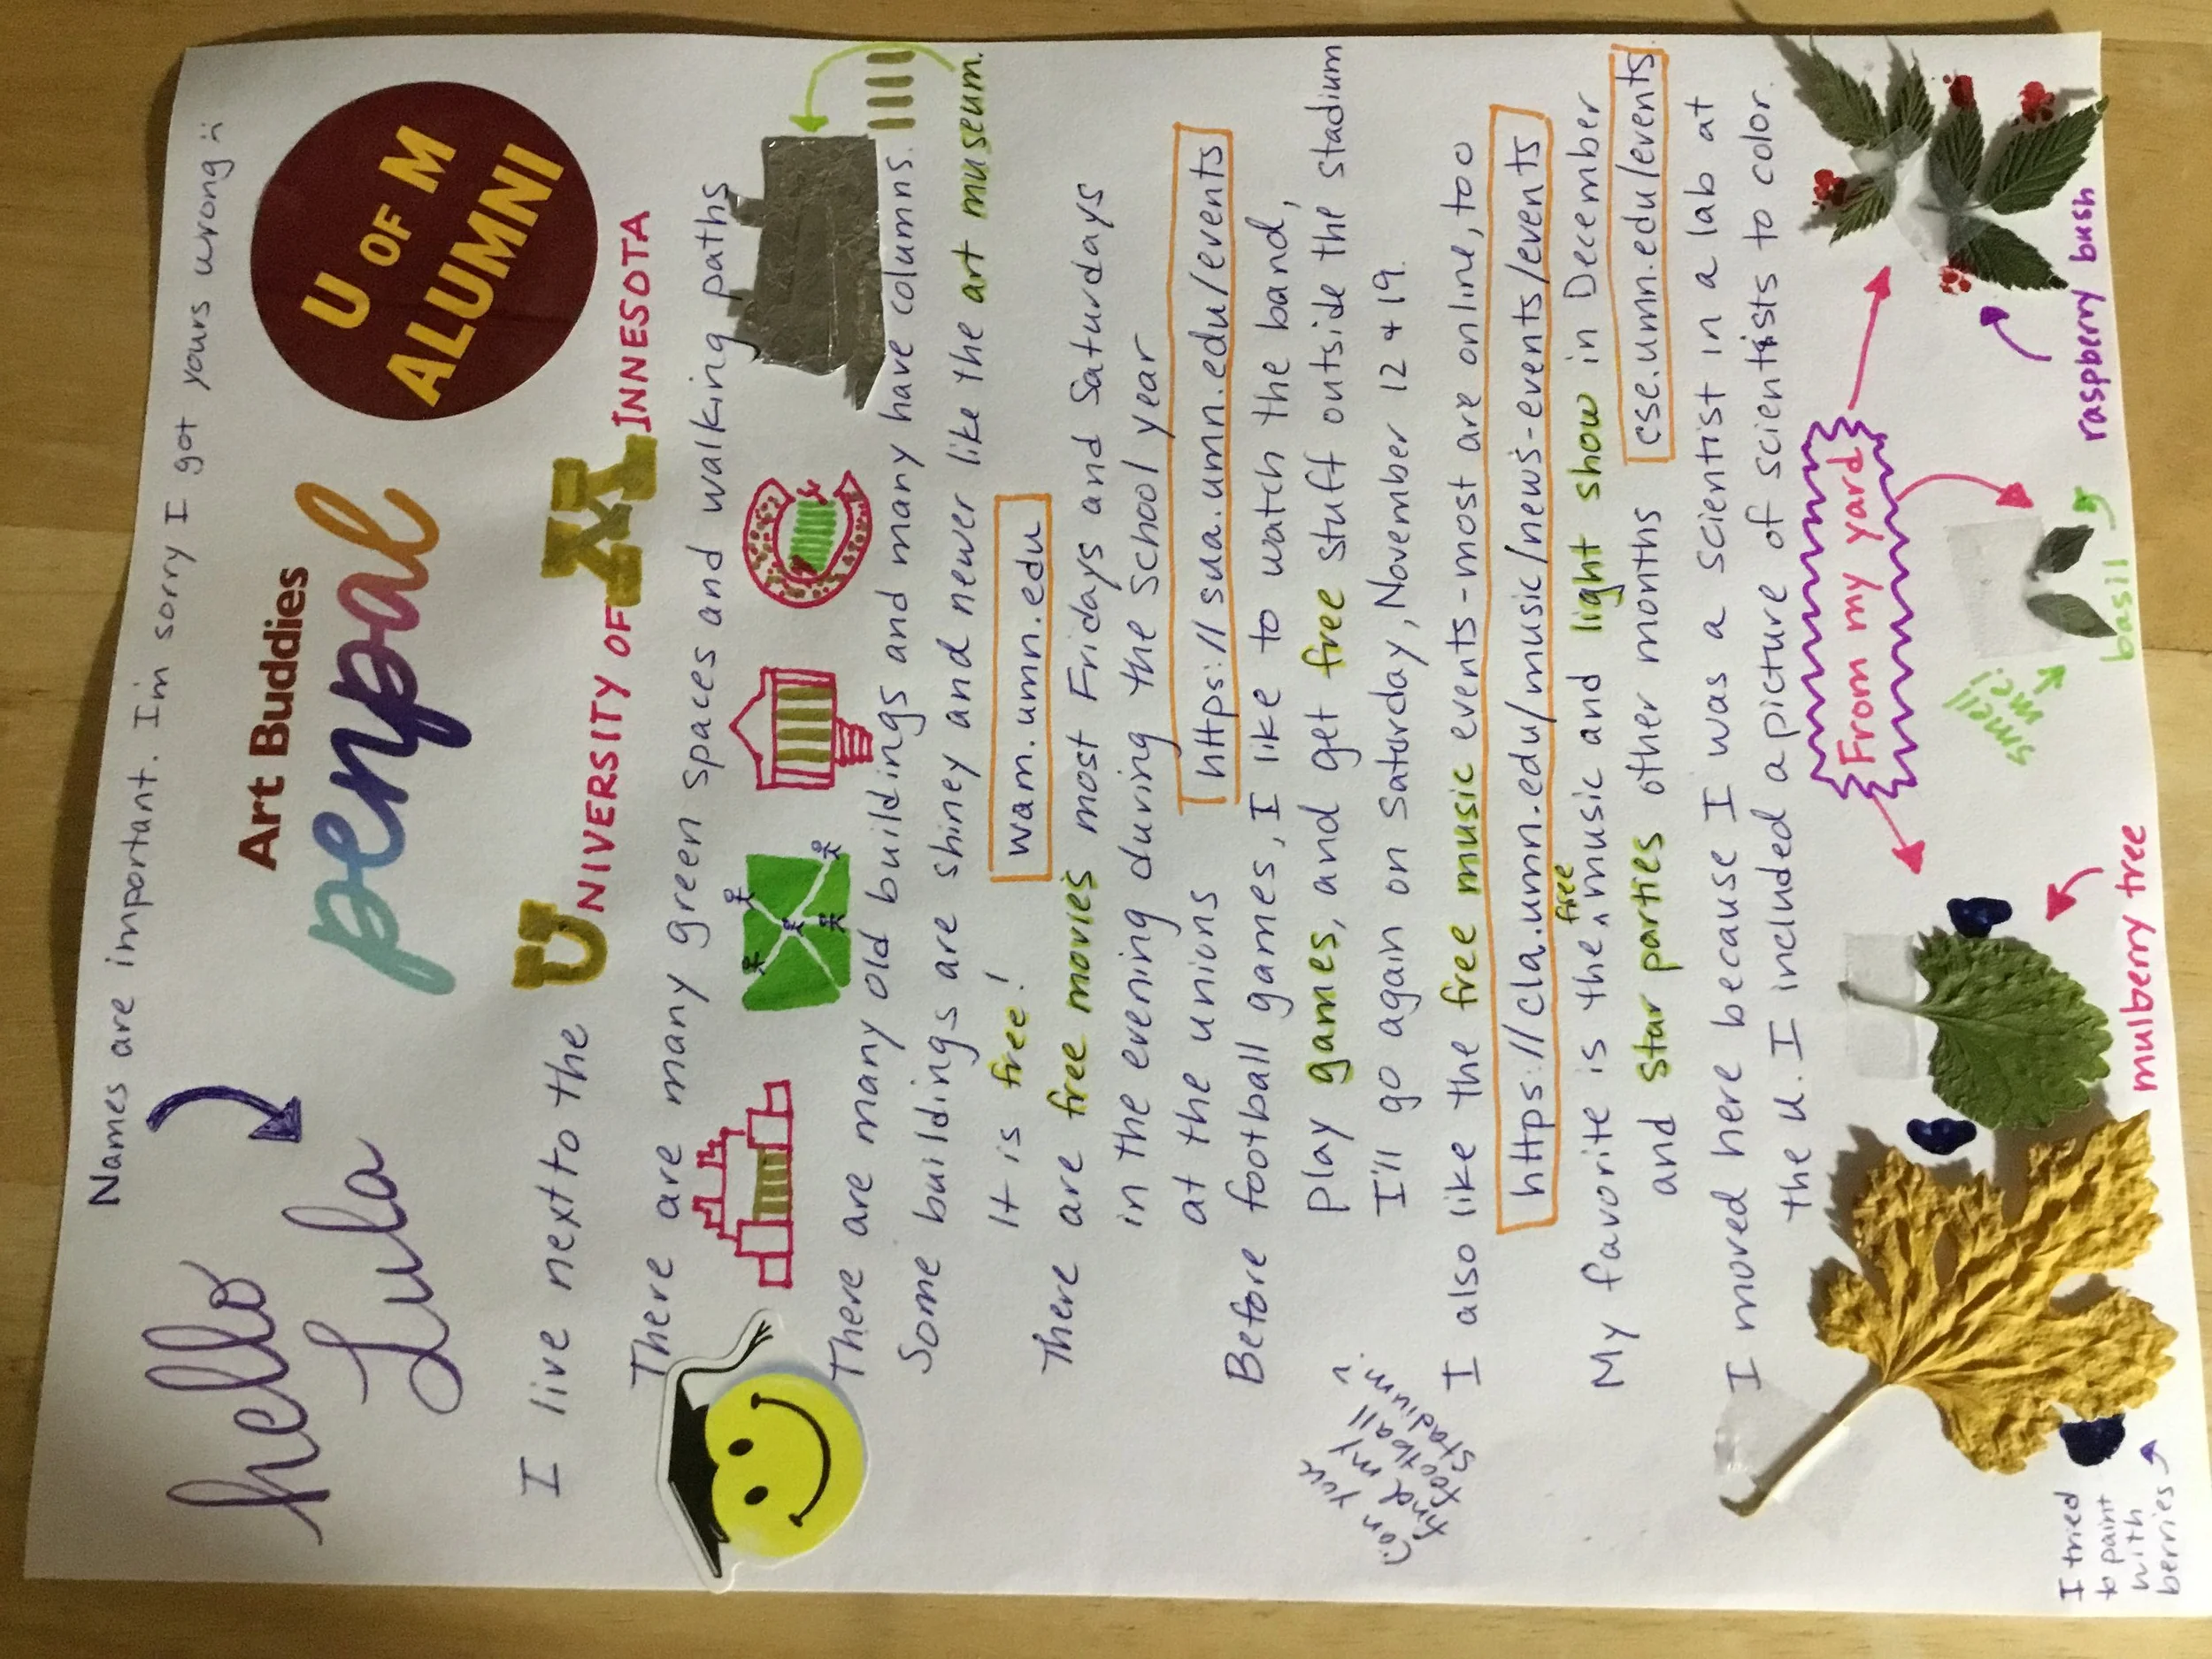 Names are important. I'm sorry I got yours wrong :(
hello
Lula
Art Buddies
penpal
U OF M
ALUMNI
I live next to the UNIVERSITY OF MINNESOTA
There are many green spaces and walking paths
There are many old buildings and many have columns.
Some buildings are shiney and newer like the art museum.
It is free!
wam.umn.edu
There are free movies most Fridays and Saturdays
in the evening during the school year
at the unions
https://sua.umn.edu/events
Before football games, I like to watch the band,
play games, and get free stuff outside the stadium
I'll go again on Saturday, November 12 + 19.
football
stadium
I also like the free music events - most are online, too
https://cla.umn.edu/music/news-events/events
My favorite is the free music and light show in December
and star parties other months
cse.umn.edu/events
I moved here because I was a scientist in a lab at
the U. I included a picture of scientists to color.
From my yard
smell
me!
I tried
to paint
with
berries
mulberry tree
basil
raspberry bush